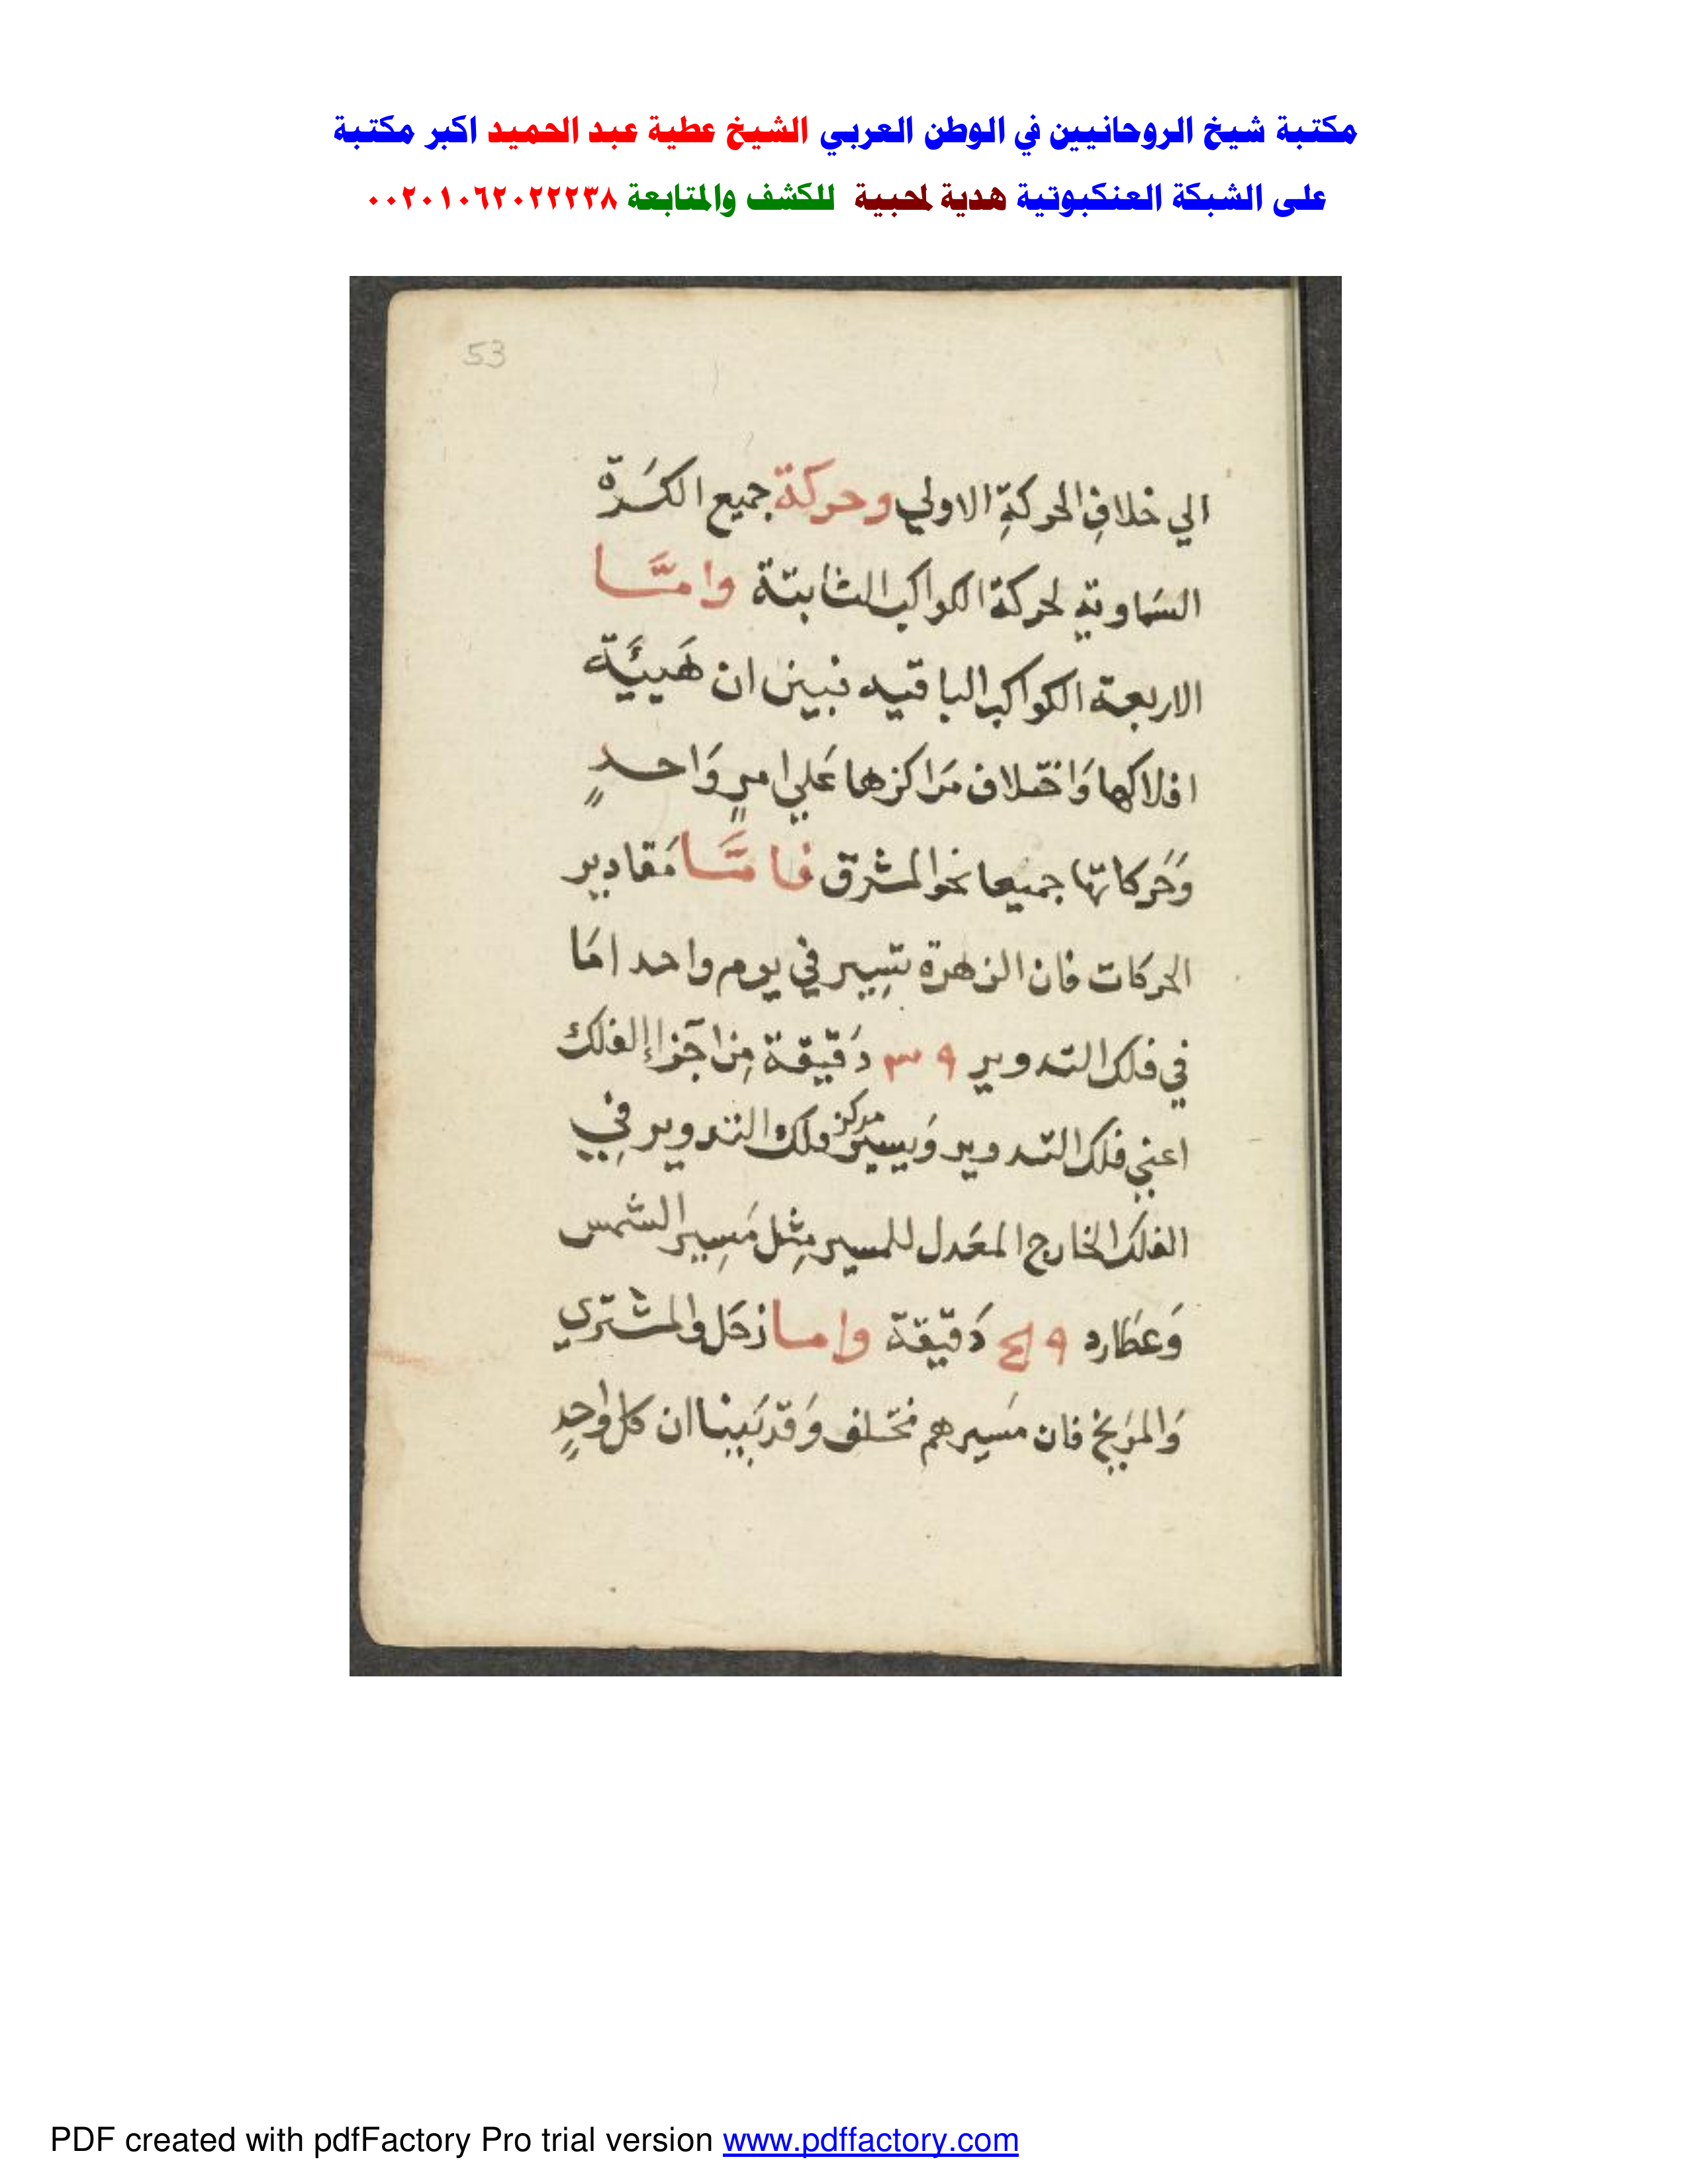 مكتبة شيخ الروحانيين في الوطن العربي الشيخ عطية عبد الحميد اكبر مكتبة
على الشبكة العنكبوتية هدية لمحبية للكشف والمتابعة ٠٠٢٠١٠٦٢٠٢٢٢٣٨
53
الي خلافِ الحركةِ الاولي وحركة جميع الكُرة
السَماوية لحركة الكواكب الثابتة وامَّا
الاربعة الكواكب الباقيه نبين ان هَيئَة
افلاكها وَاختلاف مَراكزها عَلي امرٍ وَاحدٍ
وَحَركاتها جميعا نحو المشرق فامَّا مَقادير
الحركات فان الزهرة تسِير في يوم واحد امَا
في فلك التدوير ٩ ٣ دَقيقة مِن اجَزاإ الفلك
اعني فلك التدوير وَيسير مركز فلك التدوير فِي
الفلك الخارج المعَدل للمسير مِثل مَسِير الشمس
وَعطَارد ٩ ٤ دَقيقة واما زحَل والمشتري
وَالمرَيخ فان مَسيرهم مختلف وَقد بَينا ان كل واحدٍ
PDF created with pdfFactory Pro trial version www.pdffactory.com